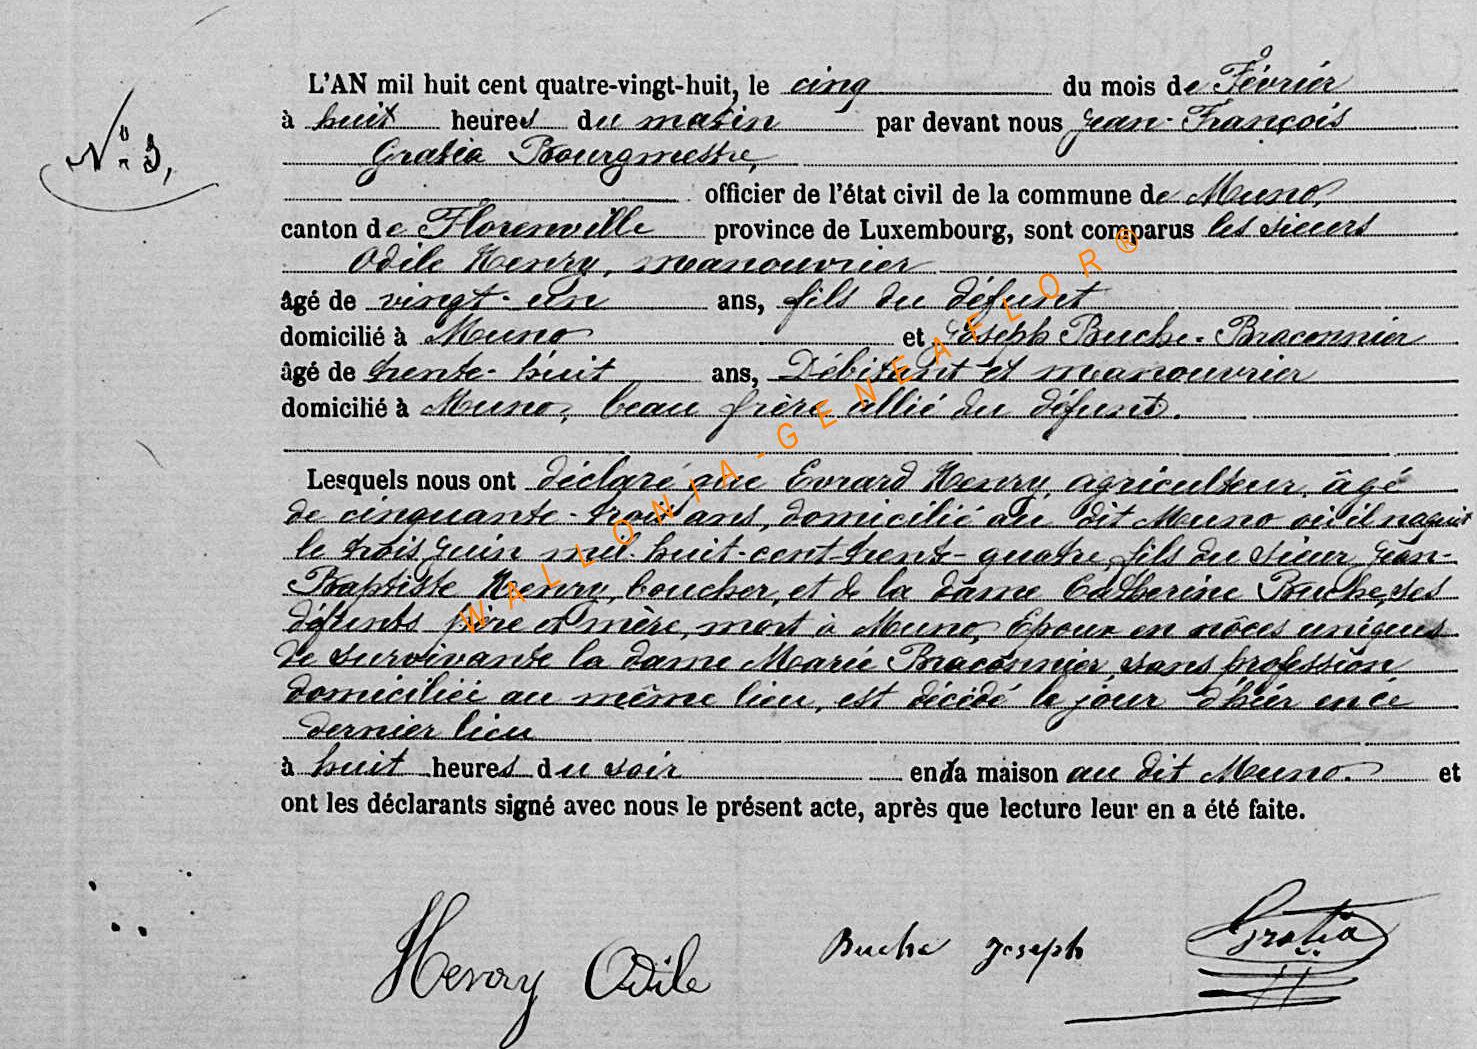 N° 3,
L'AN mil huit cent quatre-vingt-huit, le cinq du mois de Février
à huit heures du matin par devant nous Jean-François
Gratia Bourgmestre,
officier de l'état civil de la commune de Muno,
canton de Florenville province de Luxembourg, sont comparus les sieurs
Odile Henry, manouvrier
âgé de vingt-un ans, fils du défunt
domicilié à Muno et Joseph Buche-Braconnier
âgé de trente-huit ans, Débitant et manouvrier
domicilié à Muno, beau frère allié du défunt.
Lesquels nous ont déclaré que Evrard Henry, agriculteur, âgé
de cinquante-trois ans, domicilié au dit Muno où il naquit
le trois Juin mil-huit-cent-trente-quatre, fils du sieur Jean-
Baptiste Henry, boucher, et de la dame Catherine Buche, ses
défunts père et mère, mort à Muno, Epoux en nôces uniques
de survivante la dame Marie Braconnier, sans profession
domiciliée au même lieu, est décédé le jour d'hier en ce
dernier lieu
à huit heures du soir en la maison au dit Muno. et
ont les déclarants signé avec nous le présent acte, après que lecture leur en a été faite.
Henry Odile Buche Joseph Gratia
WALLONIA-GENEAFLOR®